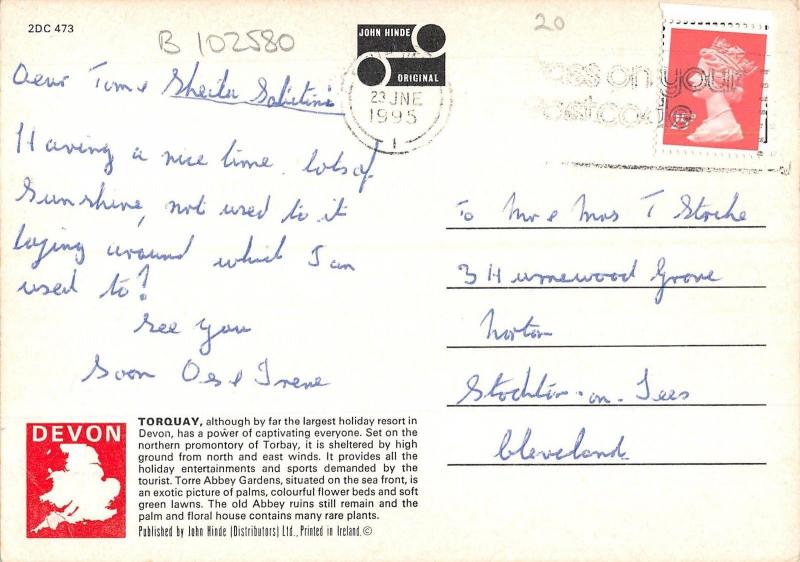 2DC 473
B 102580
20
JOHN HINDE
ORIGINAL
23 JNE
1995
1
on your
postcode
Dear Tom &
Having a nice time. lots of
sunshine, not used to it
laying around which I am
used to!
See you
Soon Des & Irene
To Mr & Mrs T
3 Grove
Norton
Stockton-on-Tees
Cleveland.
DEVON
TORQUAY, although by far the largest holiday resort in
Devon, has a power of captivating everyone. Set on the
northern promontory of Torbay, it is sheltered by high
ground from north and east winds. It provides all the
holiday entertainments and sports demanded by the
tourist. Torre Abbey Gardens, situated on the sea front, is
an exotic picture of palms, colourful flower beds and soft
green lawns. The old Abbey ruins still remain and the
palm and floral house contains many rare plants.
Published by John Hinde (Distributors) Ltd., Printed in Ireland. ©